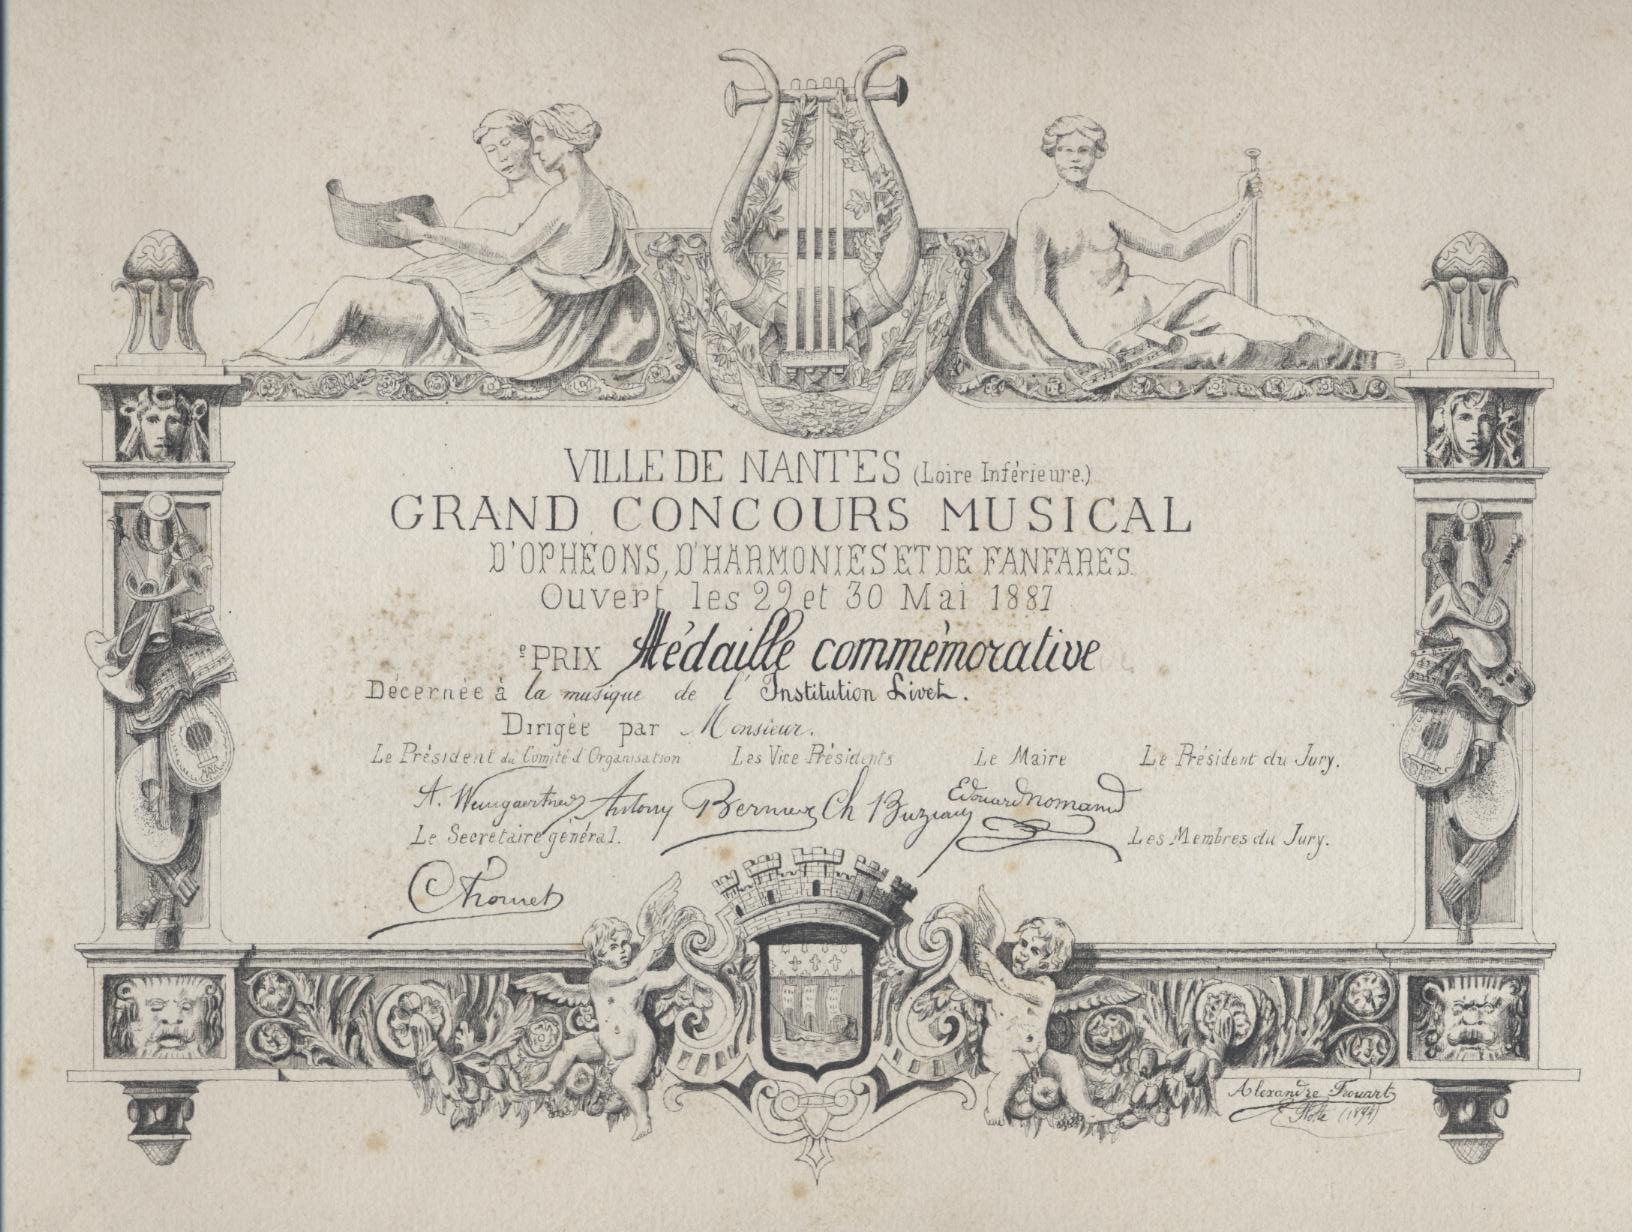 VILLE DE NANTES (Loire Inférieure.)
GRAND CONCOURS MUSICAL
D'OPHÉONS, D'HARMONIES ET DE FANFARES.
Ouvert les 29 et 30 Mai 1887
e PRIX Médaille commémorative
Décernée à la musique de l'Institution Livet.
Dirigée par Monsieur.
Le Président du Comité d'Organisation Les Vice Présidents Le Maire Le Président du Jury.
A. Weingaertner Antony Bernier Ch Edouard Normand
Le Secrétaire général. Les Membres du Jury.
Alexandre Frouart